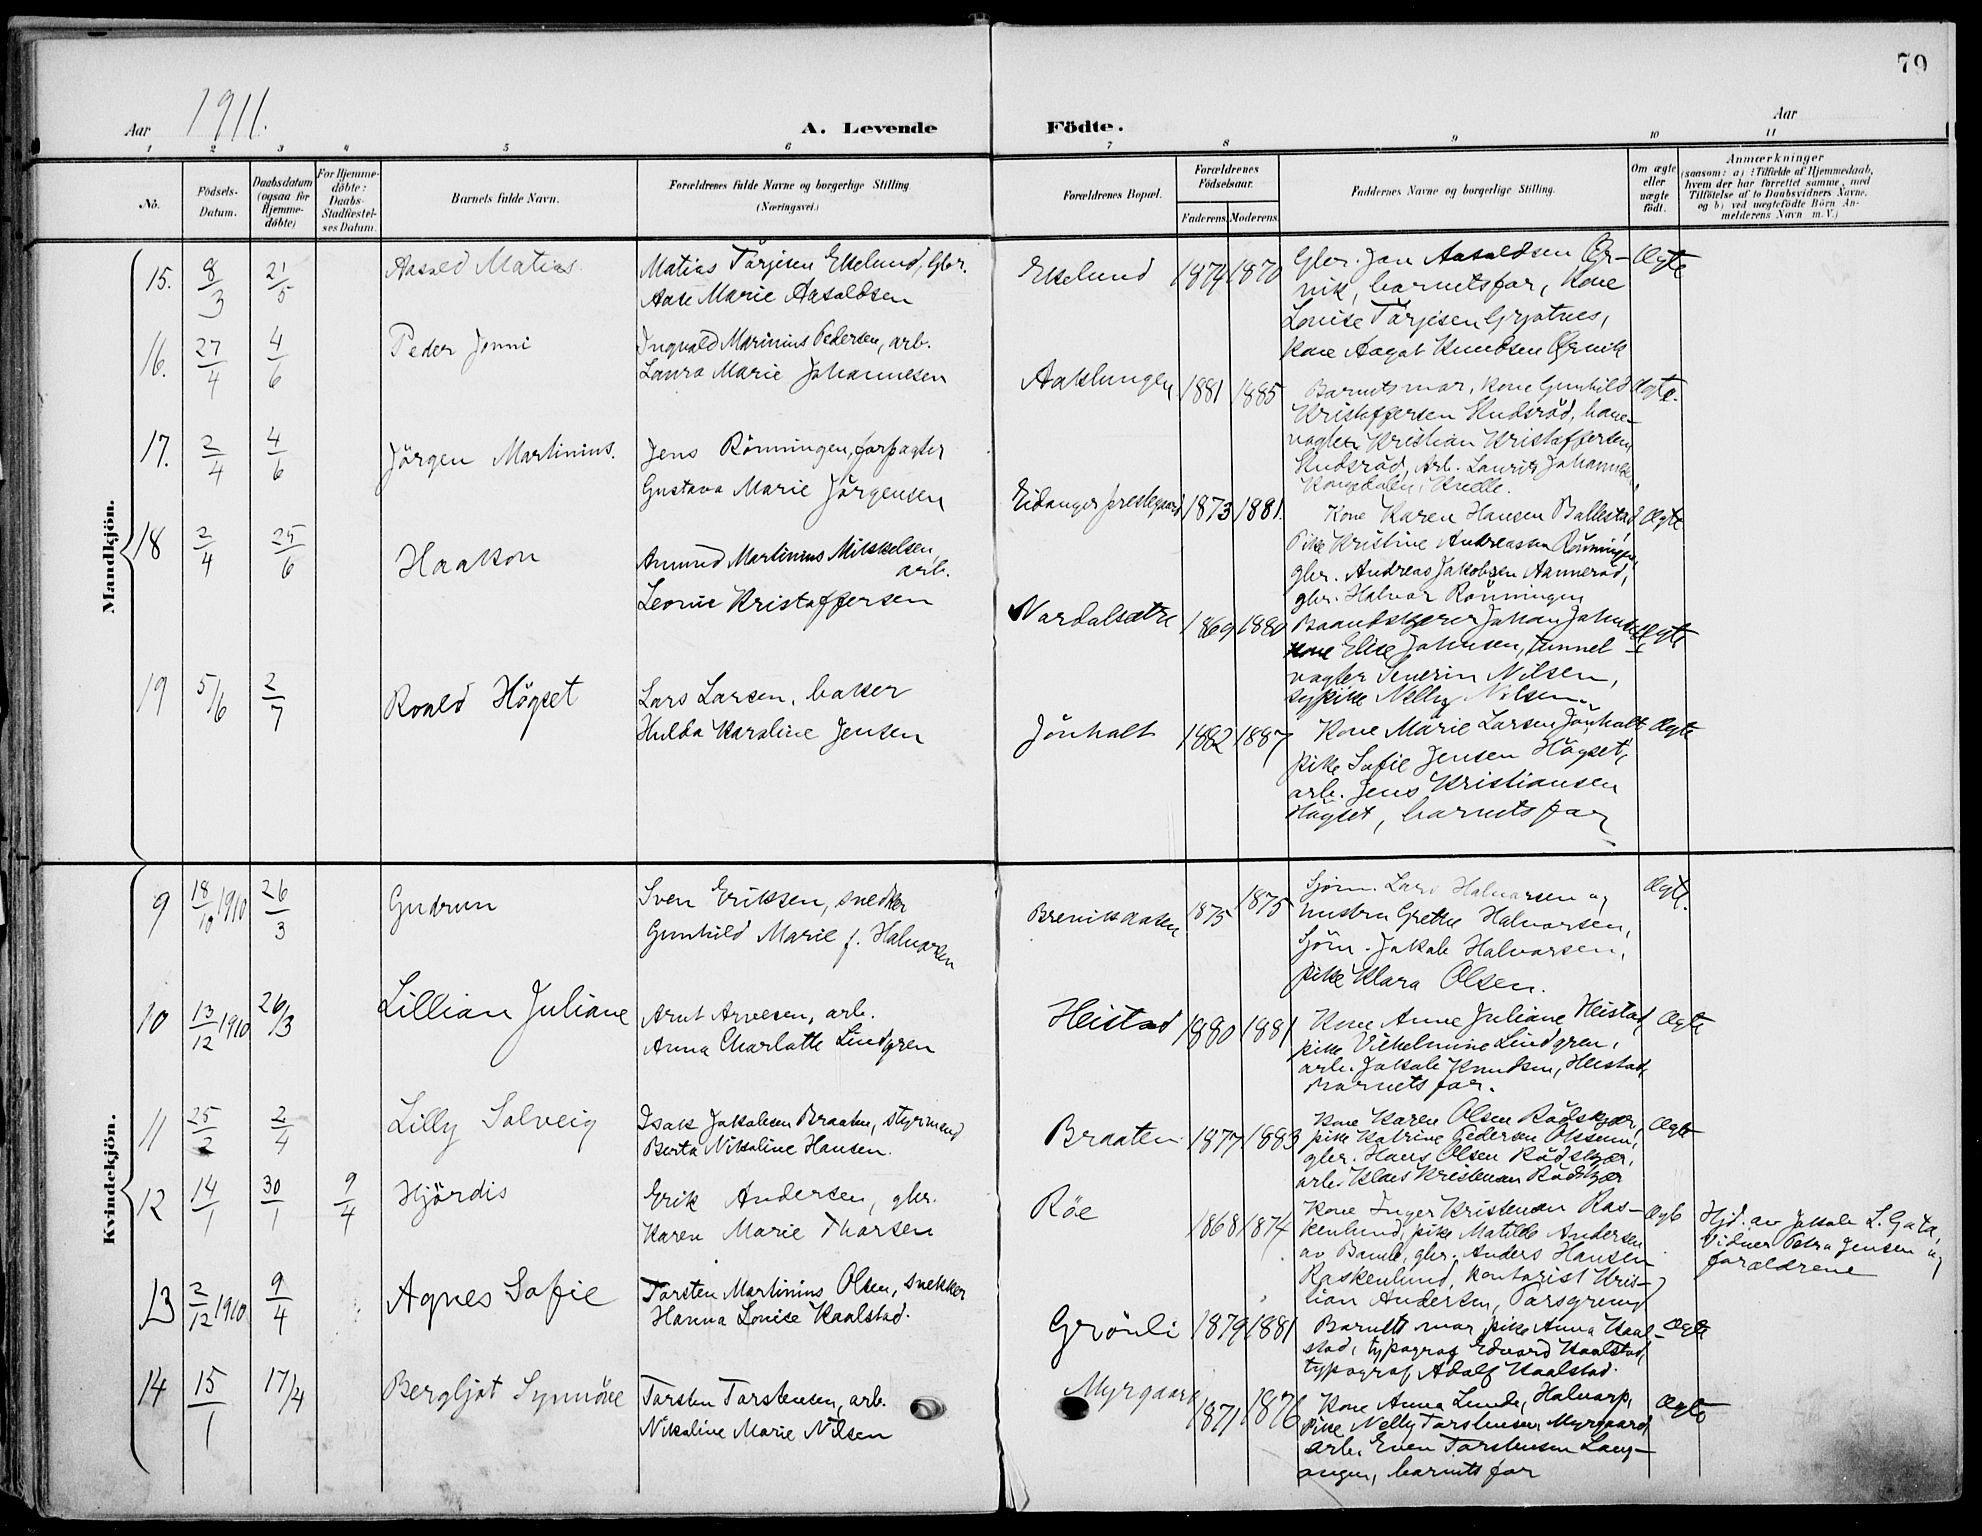 79
Aar 1911.
A. Levende
Födte.
Aar
1 2 3 4 5 6 7 8 9 10 11
No.
Födsels-
Datum.
Daabsdatum
(ogsaa for
Hjemme-
döbte)
For Hjemme-
döbte:
Daabs-
Stadfæstel-
ses Datum.
Barnets fulde Navn.
Forældrenes fulde Navne og borgerlige Stilling
(Næringsvei.)
Forældrenes Bopæl.
Forældrenes
Födselsaar.
Faderens. Moderens.
Faddernes Navne og borgerlige Stilling.
Om ægte
eller
uægte
födt.
Anmærkninger
(saasom: a) i Tilfælde af Hjemmedaab,
hvem der har forrettet samme, med
Tilföielse af to Daabsvidners Navne.
og b) ved uægtefödte Börn An-
melderens Navn m.V.)
Mandkjön.
15. 8/3 21/5 Aasold Matias.
Matias Tarjesen Ekelund, Gbr.
Aase Marie Aasoldsen
Ekelund 1874 1870
Gbr. Jan Aasoldsen Ør-
vik, barnets far, kone
Louise Tarjesen Grjotnes,
kone Aagot Knudsen Ørvik
Ægte
16. 27/4 4/6 Peder Jonni
Ingvald Marinius Pedersen, arb.
Laura Marie Johannesen
Aaklungen 1881 1885
Barnets mor, kone Gunhild
Kristoffersen Skudsröd, bane-
vagter Kristian Kristoffersen
Skudsröd, Arb. Laurits Johannes
Ægte.
17. 2/4 4/6 Jörgen Martinius.
Jens Rönningen, forpagter
Gustava Marie Jörgensen
Eidanger prestegaard 1873 1881.
Kone Karen Hansen Ballestad,
Pike Kristine Andreassen Rönningen,
gbr. Andreas Jakobsen Aannerød,
gbr. Halvor Rönningen
Ægte
18 2/4 25/6 Haakon
Amund Martinius Mikkelsen,
arb.
Leonie Kristoffersen
Nordalsætre 1869 1880
Johan
kone Elise Johnsen, tunnel-
vagter Severin Nilsen,
sypike Nelly Nilsen
Ægte
19 5/6 2/7 Roald Högset
Lars Larsen, baker
Hulda Karoline Jensen
Jönholt 1882 1887
Kone Marie Larsen Jönholt
pike Sofie Jensen Högset,
arb. Jens Kristiansen
Högset, barnets far
Ægte
Kvindekjön.
9 18/10 1910 26/3 Gudrun
Sven Eriksen, snedker
Gunhild Marie f. Halvorsen
1875 1875
Sjöm. Lars Halvorsen og
hustru Grethe Halvorsen,
Sjöm. Jakob Halvorsen,
pike Klara Olsen.
Ægte.
10 13/12 1910 26/3 Lillian Juliane
Arnt Arvesen, arb.
Anna Charlotte Lindgren
Heistad 1880 1881
Kone Anne Juliane Heistad,
pike Vilhelmine Lindgren,
arb. Jakob Knudsen, Heistad,
Barnets far.
Ægte
11 25/2 2/4 Lilly Solveig
Isak Jakobsen Braaten, styrmand
Berta Nikoline Hansen.
Braaten 1877 1883
Kone Karen Olsen Rödskjær,
pike Katrine Pedersen
gbr. Hans Olsen Rödskjær,
arb. Klaus Kristensen Rödskjær
Ægte
12 14/1 30/1 9/4 Hjördis
Erik Andersen, gbr.
Karen Marie Thorsen
Röe 1868 1874
Kone Inger Kristensen Ras-
kenlund, pike Matilde Andersen
av Bamle, gbr. Anders Hansen
Raskenlund, kontorist Kris-
tian Andersen, Porsgrund
Ægte
Hjd. av Jakob L.
Vidner Petra Jensen og
forældrene
13 2/12 1910 9/4 Agnes Sofie
Torsten Martinius Olsen, snekker
Hanna Louise Kaalstad.
Grönli 1879 1881
Barnets mor pike Anna Kaal-
stad, typograf Edvard Kaalstad,
typograf Adolf Kaalstad.
Ægte
14 15/1 17/4 Bergljot Synnöve
Torsten Torstensen, arb.
Nikoline Marie Nilsen
Myrgaard 1871 1876
Kone Anna Lunde, Halvarp,
Pike Nelly Torstensen Myrgaard,
arb. Even Torstensen Lang-
angen, barnets far
Ægte